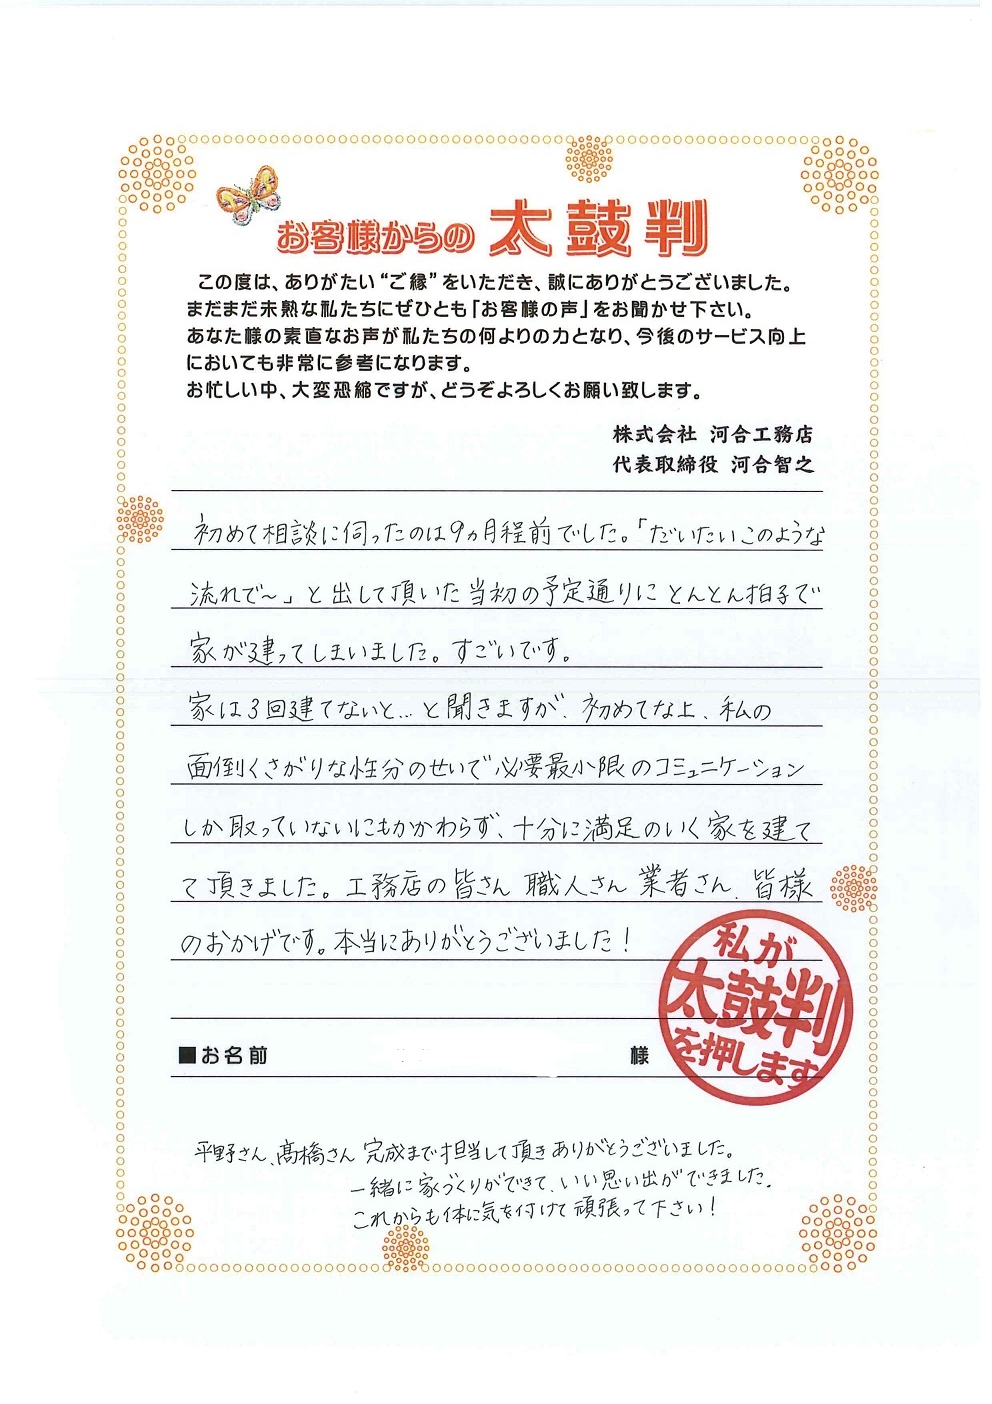 お客様からの 太鼓判
この度は、ありがたい“ご縁”をいただき、誠にありがとうございました。
まだまだ未熟な私たちにぜひとも「お客様の声」をお聞かせ下さい。
あなた様の素直なお声が私たちの何よりの力となり、今後のサービス向上
においても非常に参考になります。
お忙しい中、大変恐縮ですが、どうぞよろしくお願い致します。
株式会社 河合工務店
代表取締役 河合智之
初めて相談に伺ったのは9ヵ月程前でした。「だいたいこのような
流れで〜」と出して頂いた当初の予定通りにとんとん拍子で
家が建ってしまいました。すごいです。
家は3回建てないと…と聞きますが、初めてな上、私の
面倒くさがりな性分のせいで必要最小限のコミュニケーション
しか取っていないにもかかわらず、十分に満足のいく家を建て
て頂きました。工務店の皆さん 職人さん 業者さん、皆様
のおかげです。本当にありがとうございました！
私が
太鼓判
を押します
■お名前 様
平野さん、髙橋さん 完成まで担当して頂きありがとうございました。
一緒に家づくりができて、いい思い出ができました。
これからも体に気を付けて頑張って下さい！